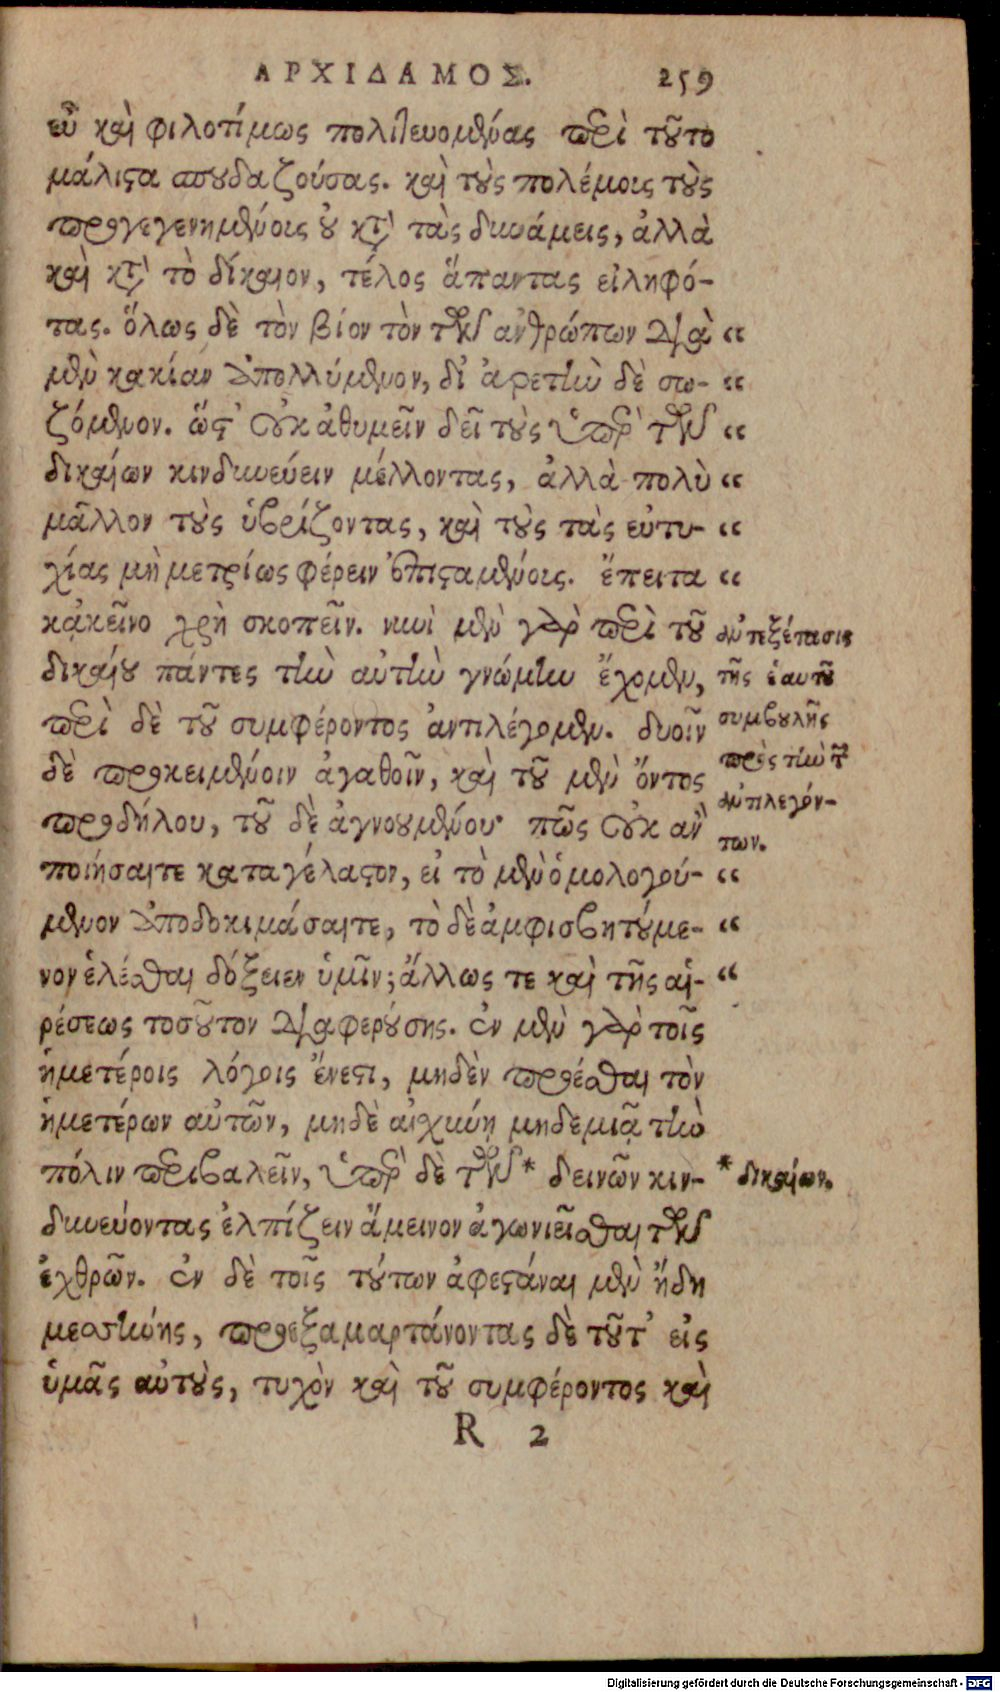 ΑΡΧΙΔΑΜΟΣ. 259
εὖ καὶ φιλοτίμως πολιτευομένας περὶ τοῦτο
μάλιστα σπουδαζούσας. καὶ τοὺς πολέμοις τοὺς
προγεγενημένοις οὐ κατὰ τὰς δυνάμεις, ἀλλὰ
καὶ κατὰ τὸ δίκαιον, τέλος ἅπαντας εἰληφό-
τας. ὅλως δὲ τὸν βίον τὸν τῶν ἀνθρώπων διὰ “
μὲν κακίαν ἀπολλύμενον, δι᾽ ἀρετὴν δὲ σω- “
ζόμενον. ὥστ᾽ οὐκ ἀθυμεῖν δεῖ τοὺς ὑπὲρ τῶν “
δικαίων κινδυνεύειν μέλλοντας, ἀλλὰ πολὺ “
μᾶλλον τοὺς ὑβρίζοντας, καὶ τοὺς τὰς εὐτυ- “
χίας μὴ μετρίως φέρειν ἐπισταμένοις. ἔπειτα “
κἀκεῖνο χρὴ σκοπεῖν. νυνὶ μὲν γὰρ περὶ τοῦ
δικαίου πάντες τὴν αὐτὴν γνώμην ἔχομεν,
περὶ δὲ τοῦ συμφέροντος ἀντιλέγομεν. δυοῖν
δὲ προκειμένοιν ἀγαθοῖν, καὶ τοῦ μὲν ὄντος
προδήλου, τοῦ δὲ ἀγνουμένου· πῶς οὐκ ἂν
ποιήσαιτε καταγέλαστον, εἰ τὸ μὲν ὁμολογού- “
μενον ἀποδοκιμάσαιτε, τὸ δὲ ἀμφισβητούμε- “
νον ἑλέσθαι δόξειεν ὑμῖν; ἄλλως τε καὶ τῆς αἱ- “
ρέσεως τοσοῦτον διαφερούσης. ἐν μὲν γὰρ τοῖς
ἡμετέροις λόγοις ἔνεστι, μηδὲν προέσθαι τὸν
ἡμετέρων αὐτῶν, μηδὲ αἰχύνῃ μηδεμιᾷ τὴν
πόλιν περιβαλεῖν, ὑπὲρ δὲ τῶν * δεινῶν κιν-
δυνεύοντας ἐλπίζειν ἄμεινον ἀγωνιεῖσθαι τῶν
ἐχθρῶν. ἐν δὲ τοῖς τούτων ἀφεστάναι μὲν ἤδη
μεσσήνης, προεξαμαρτάνοντας δὲ τοῦτ᾽ εἰς
ὑμᾶς αὐτοὺς, τυχὸν καὶ τοῦ συμφέροντος καὶ
R 2
ἀντεξέτασις
τῆς ἑαυτοῦ
συμβουλῆς
πρὸς τὴν τῶν
ἀντιλεγόν-
των.
* δικαίων.
Digitalisierung gefördert durch die Deutsche Forschungsgemeinschaft - DFG